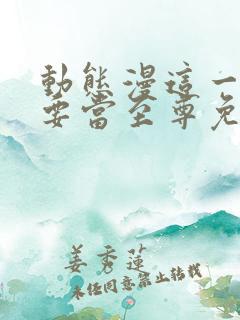 動態漫這一
要當至尊免
姜秀蓮
未任同意禁止转载